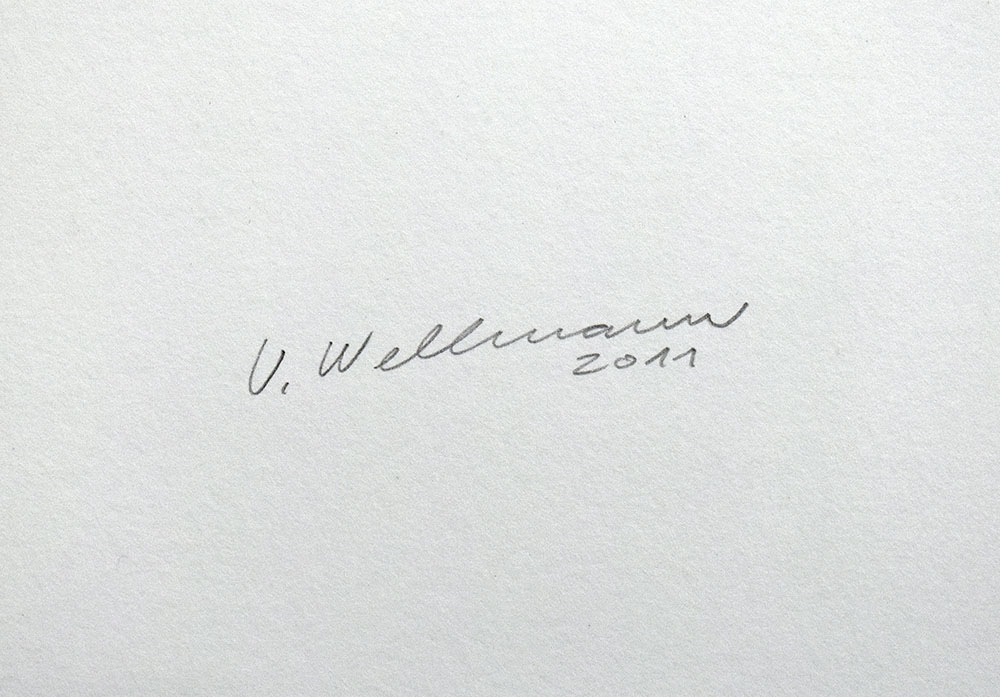 V. Wellmann
2011